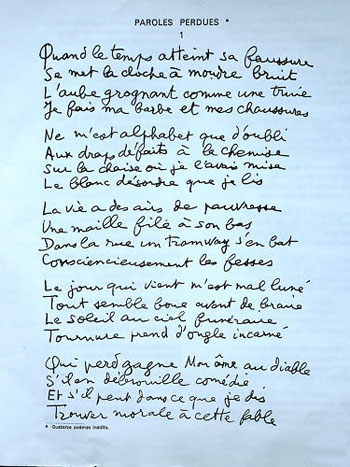 PAROLES PERDUES *
1
Quand le temps atteint sa faussure
Se met la cloche à moudre bruit
L'aube grognant comme une truie
Je fais ma barbe et mes chaussures
Ne m'est alphabet que d'oubli
Aux draps défaits à la chemise
Sur la chaise où je l'avais mise
Le blanc désordre que je lis
La vie a des airs de pauvresse
Une maille filé à son bas
Dans la rue un tramway s'en bat
Consciencieusement les fesses
Le jour qui vient m'est mal luné
Tout semble boue avant de braire
Le soleil au ciel funéraire
Tournure prend d'ongle incarné
Qui perd gagne Mon âme au diable
S'il en débrouille comédie
Et s'il peut dans ce que je dis
Trouver morale à cette fable
* Quatorze poèmes inédits.